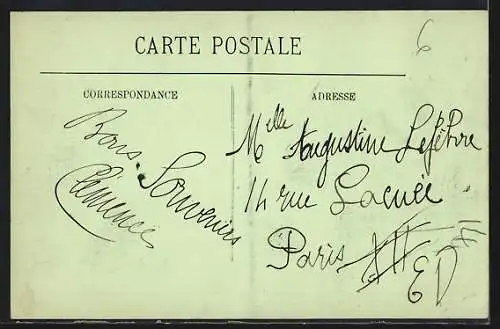 6
CARTE POSTALE
CORRESPONDANCE
ADRESSE
Bons Souvenirs
Clémence
Melle Augustine Lefèbvre
14 rue Lacuée
Paris XII
ED